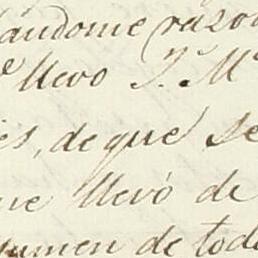 ándome razo
llevo J.ⁿ M.
es, de que se
ue llevó de
umen de tod